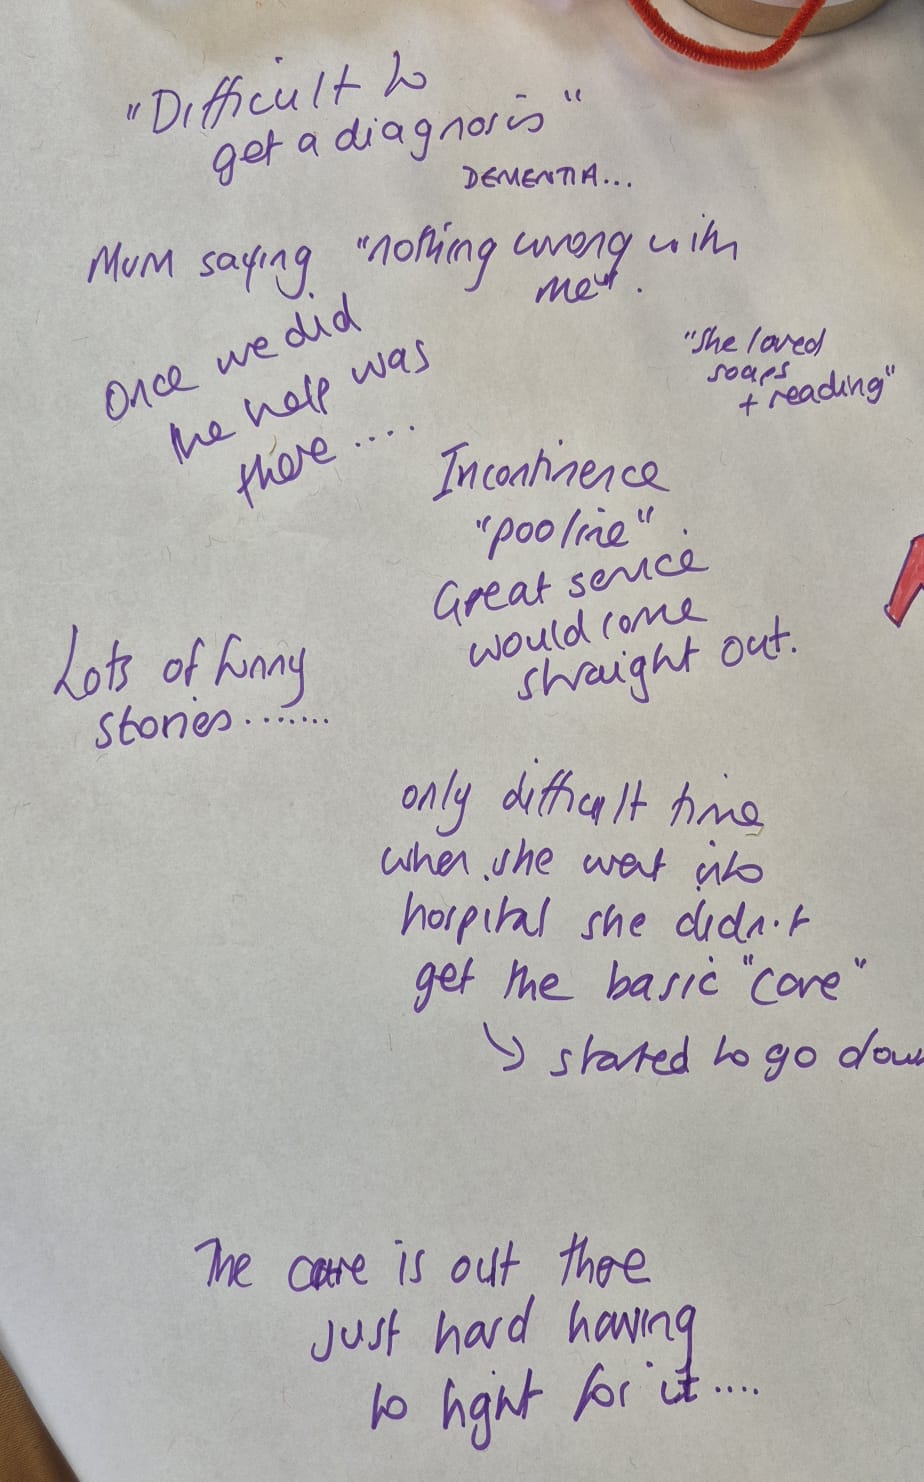 "Difficult to
get a diagnosis"
DEMENTIA...
Mum saying "nothing wrong with
me".
Once we did
the help was
there ....
"She loved
soaps
+ reading"
Incontinence
"poo line".
Great service
would come
straight out.
Lots of funny
stories.......
only difficult time
when she went into
hospital she didn't
get the basic "care"
↳ started to go down
The care is out there
just hard having
to fight for it....